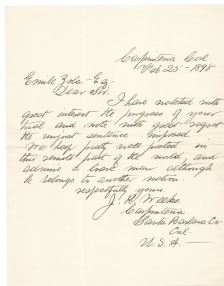 Carpinteria Cal
Feb 25 - 1898
Emile Zola - Esq.
Dear Sir.
I have watched with
great interest the progress of your
trial and note with great regret
the unjust sentence imposed.
We keep pretty well posted in
this remote part of the world and
admire a brave man although
he belongs to another nation
respectfully yours.
J. R. Weeks
Carpinteria
Santa Barbara Co
Cal.
U. S. A —